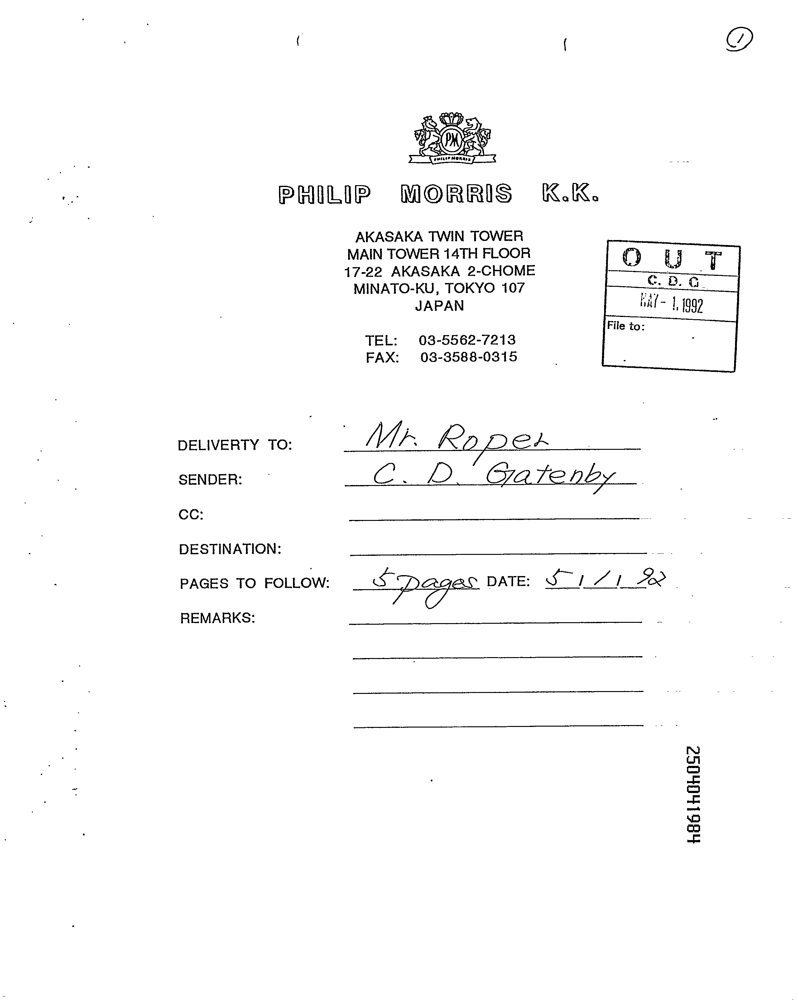 1
PM
PHILIP MORRIS
PHILIP MORRIS K.K.
AKASAKA TWIN TOWER
MAIN TOWER 14TH FLOOR
17-22 AKASAKA 2-CHOME
MINATO-KU, TOKYO 107
JAPAN
TEL: 03-5562-7213
FAX: 03-3588-0315
OUT
C. D. G
MAY - 1. 1992
File to:
DELIVERTY TO: Mr. Roper
SENDER: C. D. Gatenby
CC:
DESTINATION:
PAGES TO FOLLOW: 5 pages DATE: 5 1 / 1 92
REMARKS:
2504041984